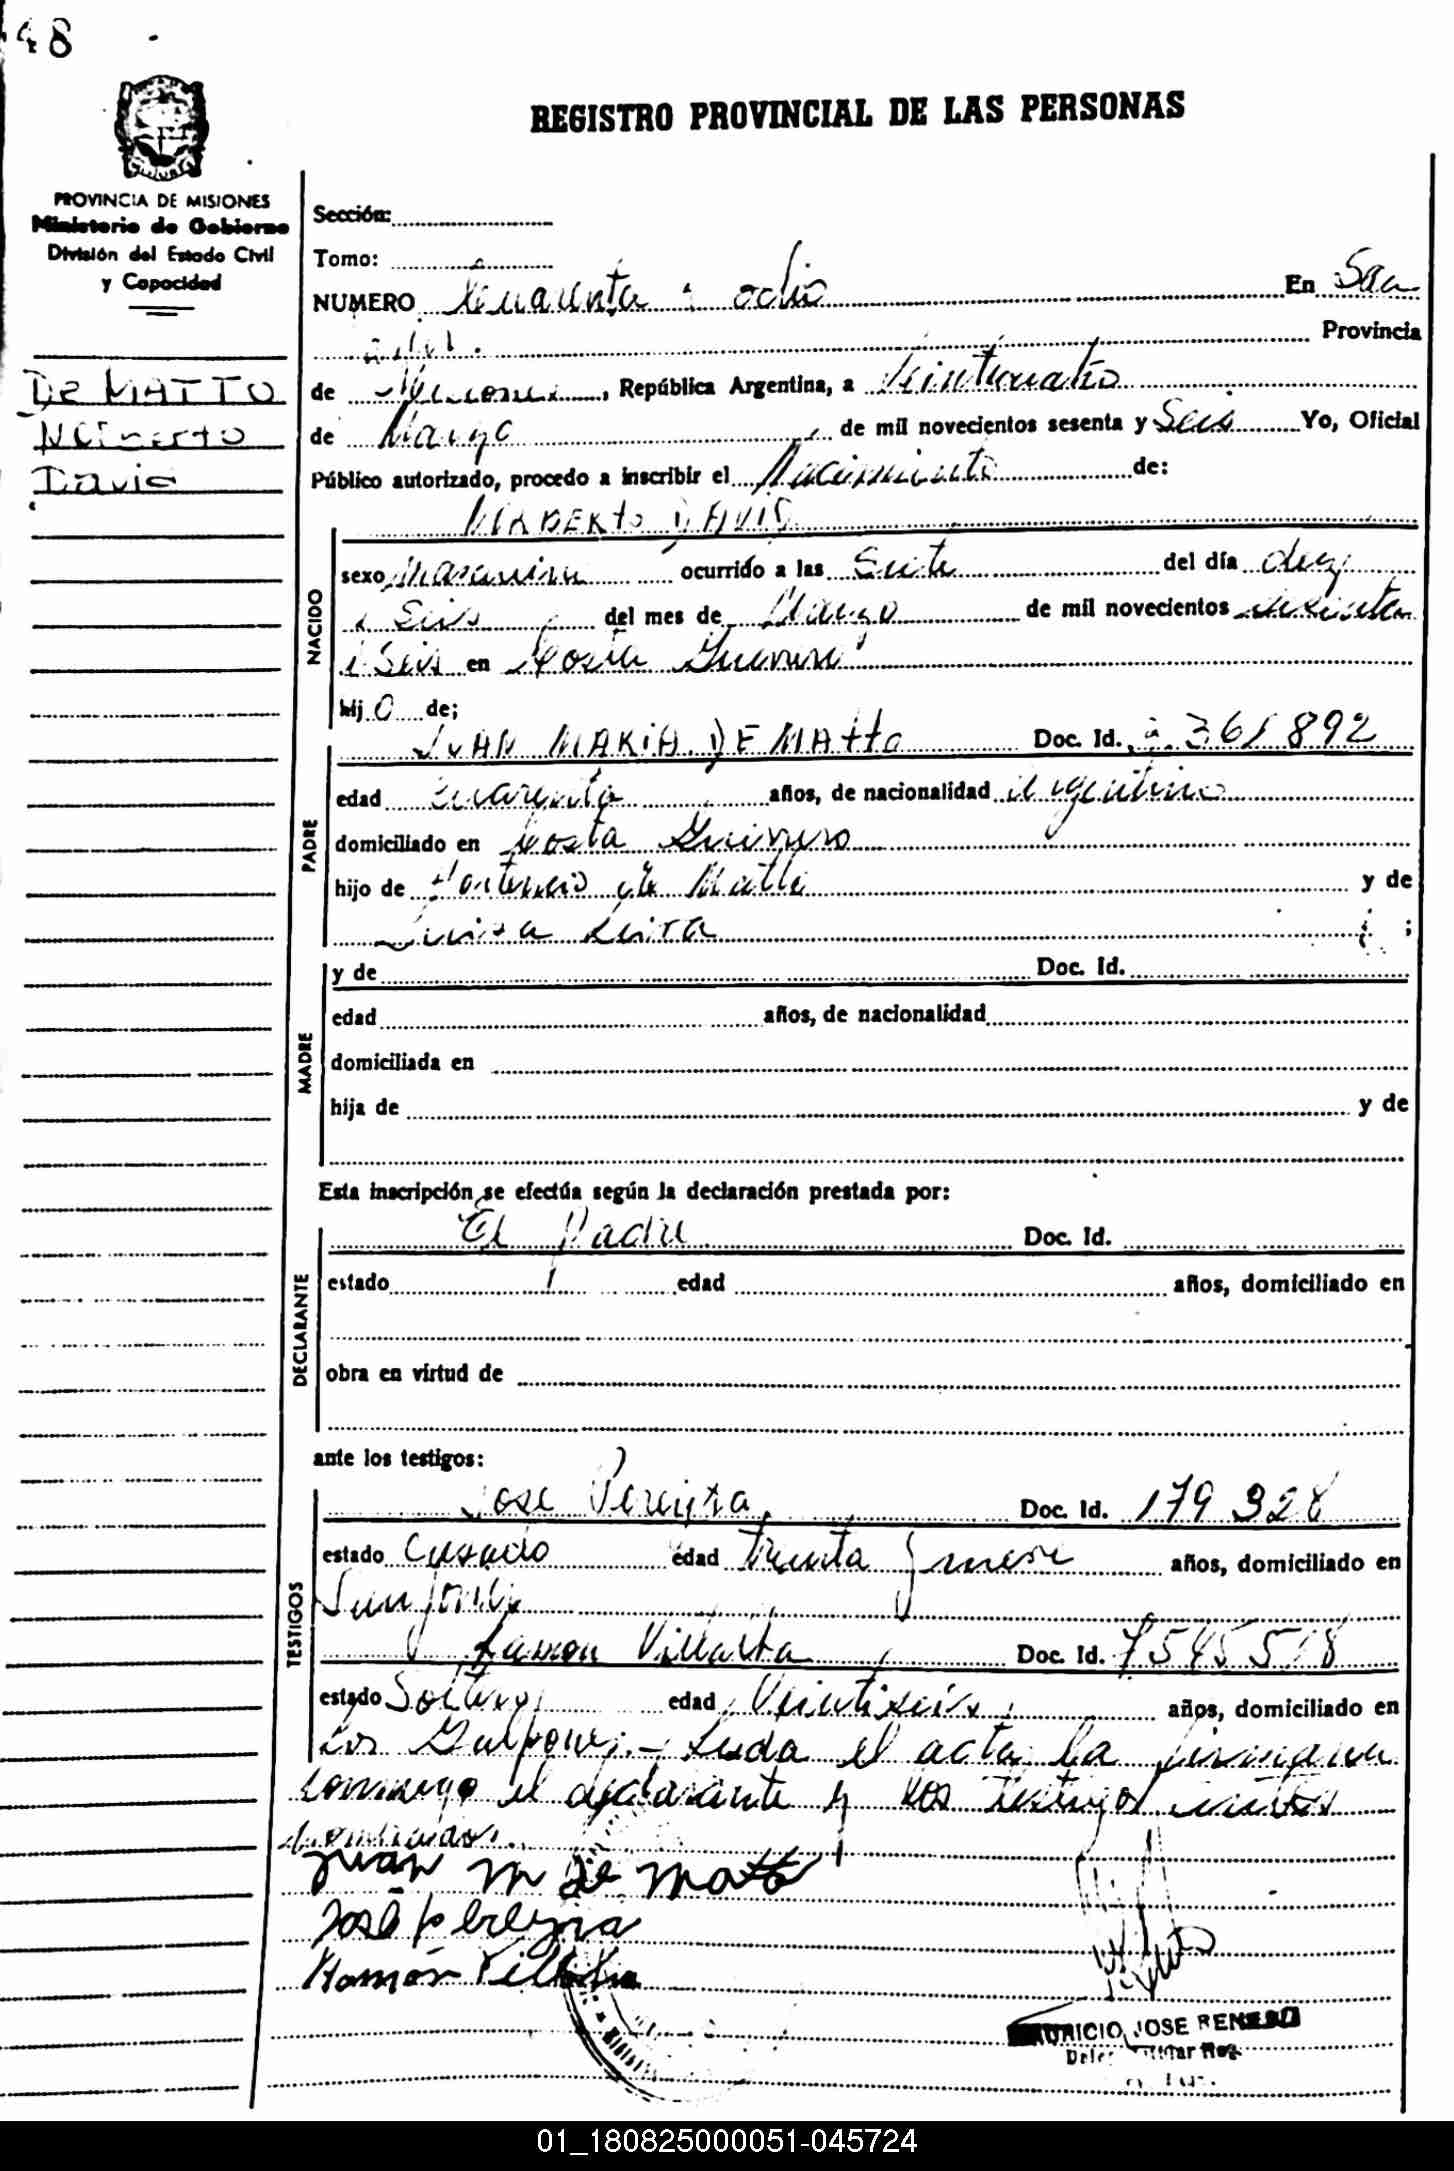 48
REGISTRO PROVINCIAL DE LAS PERSONAS
PROVINCIA DE MISIONES
Ministerio de Gobierno
División del Estado Civil
y Capacidad
DE MATTO
Norberto
David
Sección:
Tomo:
NUMERO Cuarenta i ocho En San
Provincia
de Misiones, República Argentina, a Veinticuatro
de Marzo de mil novecientos sesenta y Seis Yo, Oficial
Público autorizado, procedo a inscribir el Nacimiento de:
NORBERTO DAVID
NACIDO
sexo Masculino ocurrido a las Siete del día diez
i Seis del mes de Marzo de mil novecientos sesenta
i Seis en Costa Guerrero
hij o de;
PADRE
JUAN MARIA DE MATTO Doc. Id. 361892
edad Cuarenta años, de nacionalidad Argentino
domiciliado en Costa Guerrero
hijo de de Matto y de
Luisa ;
MADRE
y de Doc. Id.
edad años, de nacionalidad
domiciliada en
hija de y de
Esta inscripción se efectúa según la declaración prestada por:
DECLARANTE
El Padre Doc. Id.
estado edad años, domiciliado en
obra en virtud de
ante los testigos:
TESTIGOS
Jose Pereyra Doc. Id. 179 328
estado Casado edad treinta y nueve años, domiciliado en
Ramon Villalba Doc. Id. 7545518
estado Soltero edad Veintiseis años, domiciliado en
Los Galpones.- Leida el acta la firman
conmigo el declarante y los testigos
nombrados.
Juan M De Matto
José Pereyra
Ramón Villalba
MAURICIO JOSE
01_180825000051-045724